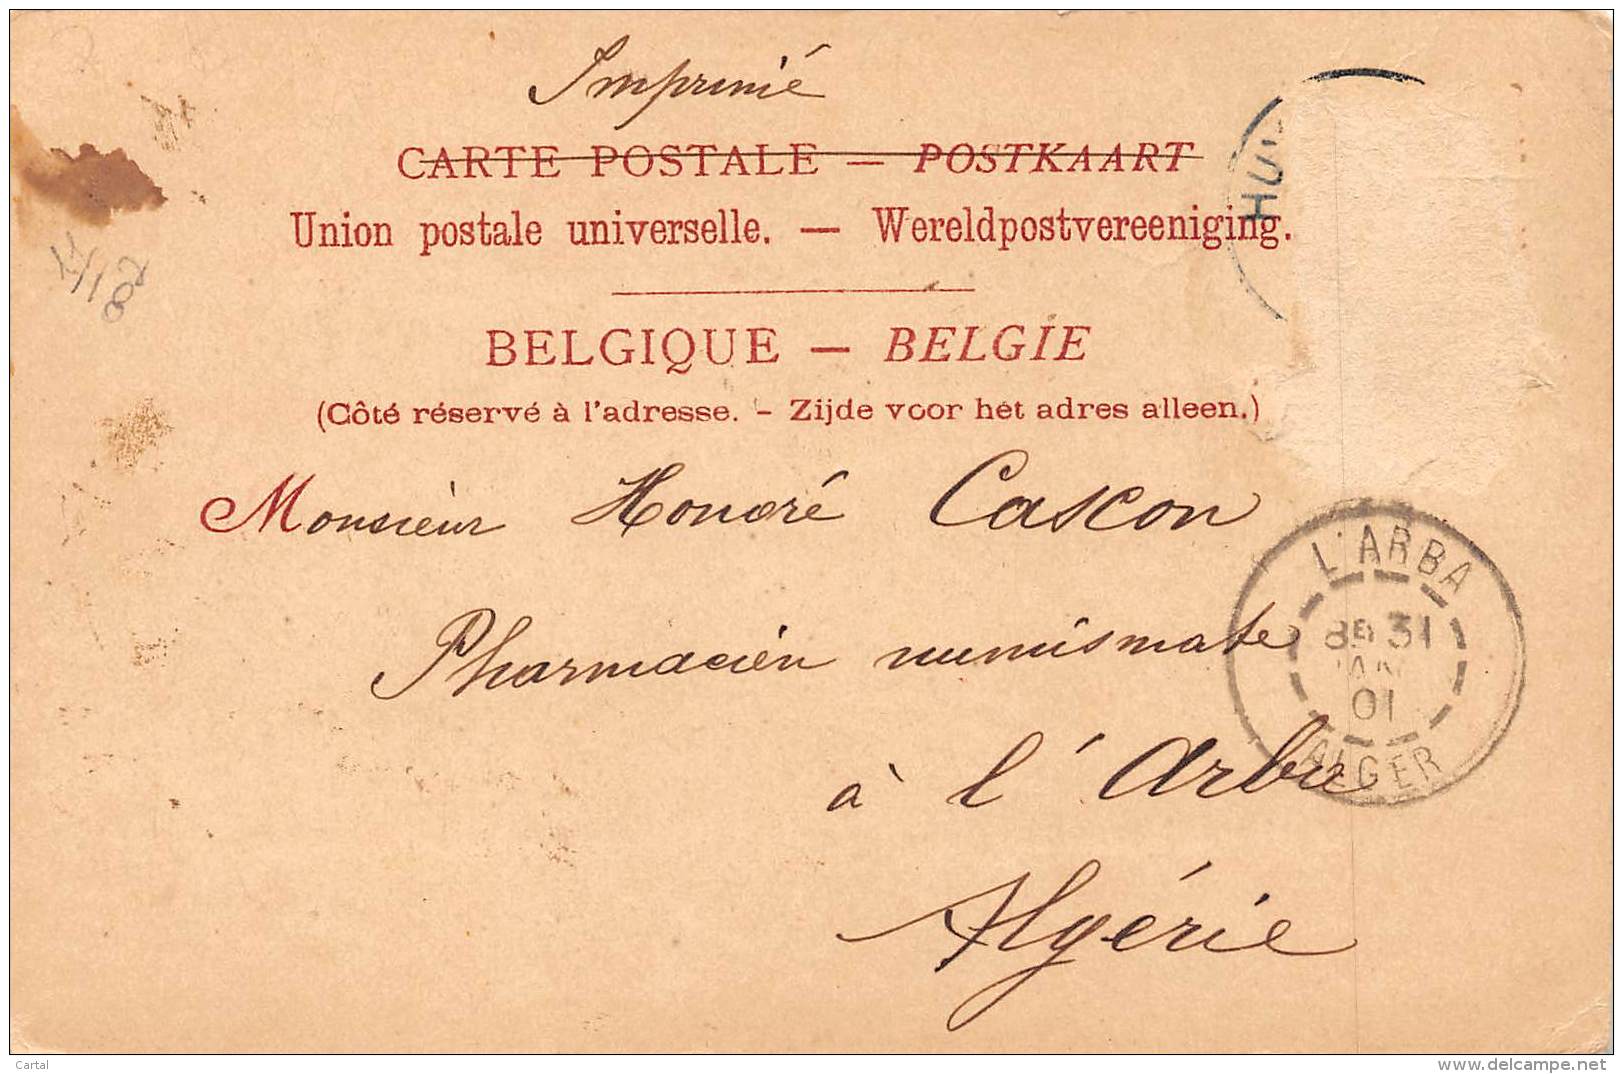 Imprimé
CARTE POSTALE — POSTKAART
Union postale universelle. — Wereldpostvereeniging.
HU
BELGIQUE — BELGIE
(Côté réservé à l'adresse. - Zijde voor het adres alleen.)
Monsieur Honoré Cascon
Pharmacien numismate
à l'Arba
Algérie
L'ARBA
8E 31
JANV
01
ALGER
Cartal
www.delcampe.net